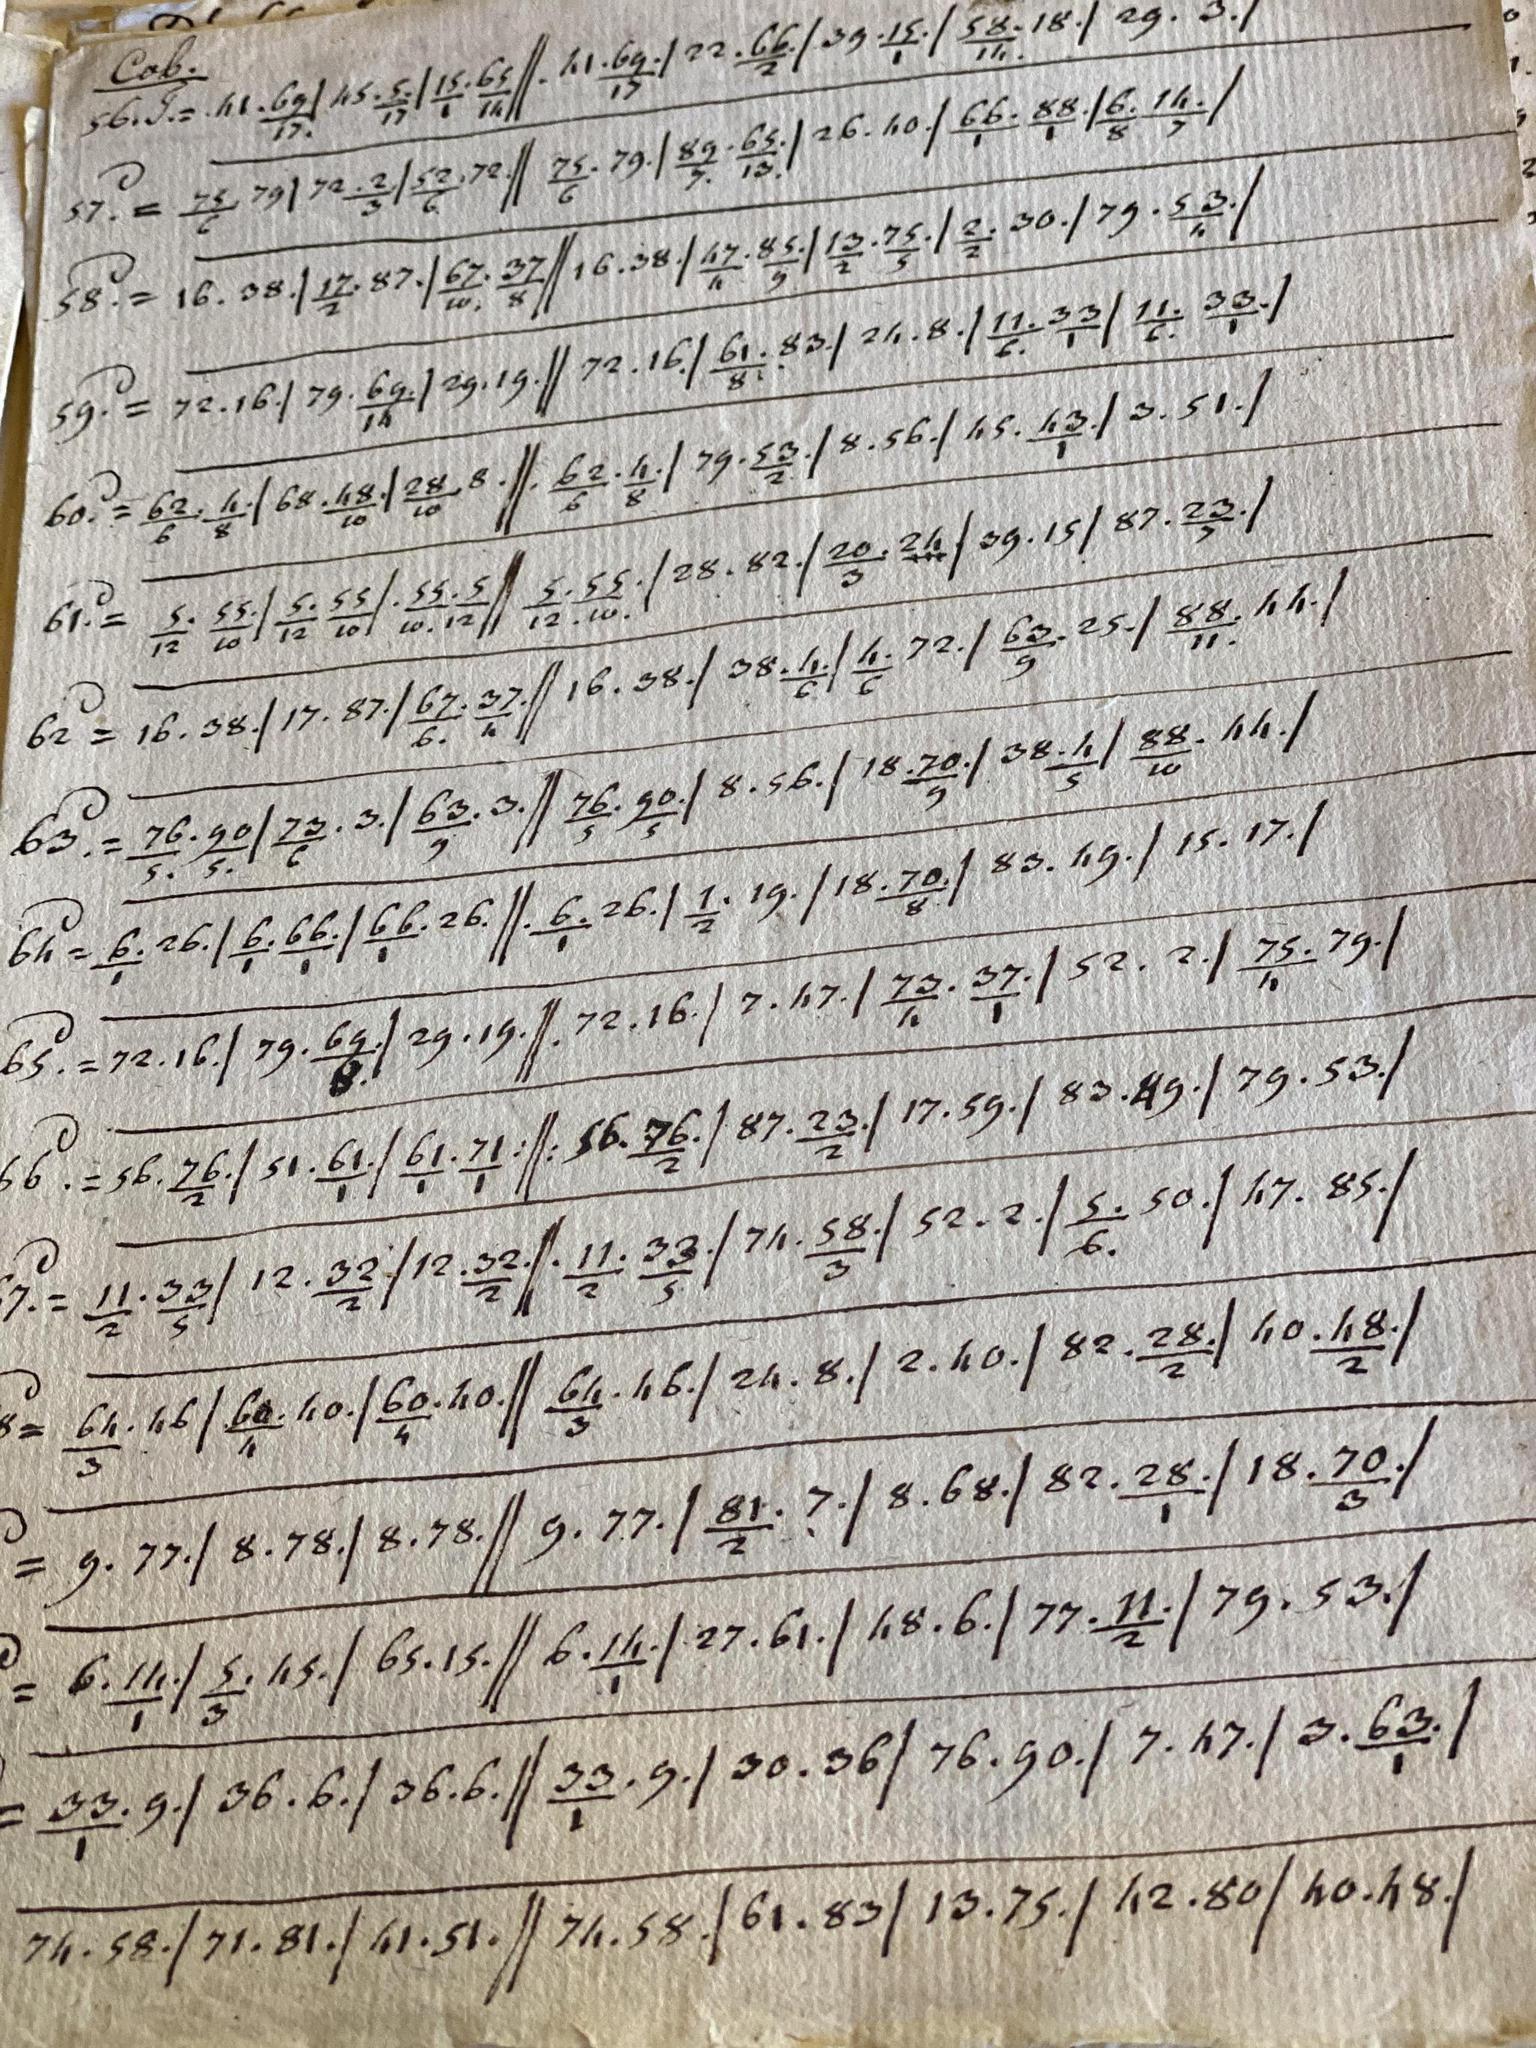 Cob.
56.= 41.69/17./ 45.5/17/ 15/1.65/14// 41.69/17./ 22.66/2./ 39.15/1./ 58/14.18./ 29.3./
57.= 75/6.79/ 72.2/3/ 52/6.72.// 75/6.79./ 89/7.65/13./ 26.40./ 66/1.88/1./ 6/8.14/7./
58.= 16.38./ 17/2.87./ 67/10.37/8// 16.38./ 47/4.85/9./ 13/2.75/5./ 2/2.30./ 79.53/4./
59.= 72.16./ 79.69/14./ 29.19.// 72.16./ 61/8.83./ 24.8./ 11/6.33/1/ 11/6.33/1./
60.= 62/6.4/8./ 68.48/10./ 28/10.8.// 62/6.4/8./ 79.53/2./ 8.56./ 45.43/1./ 3.51./
61.= 5/12.55/10./ 5/12.55/10/ 55/10.5/12// 5/12.55/10./ 28.82./ 20/3.24/ 39.15/ 87.23/7./
62= 16.38./ 17.87./ 67/6.37/4.// 16.38./ 38.4/6./ 4/6.72./ 63/9.25./ 88/11.44./
63.= 76/5.90/5./ 73/6.3./ 63/9.3.// 76/5.90/5./ 8.56./ 18.70/9./ 38.4/5/ 88/10.44./
64= 6/1.26./ 6/1.66/1./ 66/1.26.// 6/1.26./ 1/2.19./ 18.70/8./ 83.49./ 15.17./
65.= 72.16./ 79.69/8./ 29.19.// 72.16./ 7.47./ 73/4.37/1./ 52.2./ 75/4.79./
66.= 56.76/2./ 51.61/1./ 61/1.71/1.// 56.76/2./ 87.23/2./ 17.59./ 83.49./ 79.53./
7.= 11/2.33/5/ 12.32/2/ 12.32/2.// 11/2.33/5./ 74.58/3./ 52.2./ 5/6.50./ 47.85./
8= 64/3.46/ 60/4.40./ 60/4.40.// 64/3.46./ 24.8./ 2.40./ 82.28/2./ 40.48/2./
= 9.77./ 8.78./ 8.78.// 9.77./ 81/2.7./ 8.68./ 82.28/1./ 18.70/3./
= 6.14/1./ 5/3.45./ 65.15.// 6.14/1./ 27.61./ 48.6./ 77.11/2./ 79.53./
= 33/1.9./ 36.6./ 36.6.// 33/1.9./ 30.36/ 76.90./ 7.47./ 3.63/1./
74.58./ 71.81./ 41.51.// 74.58./ 61.83/ 13.75./ 42.80/ 40.48./